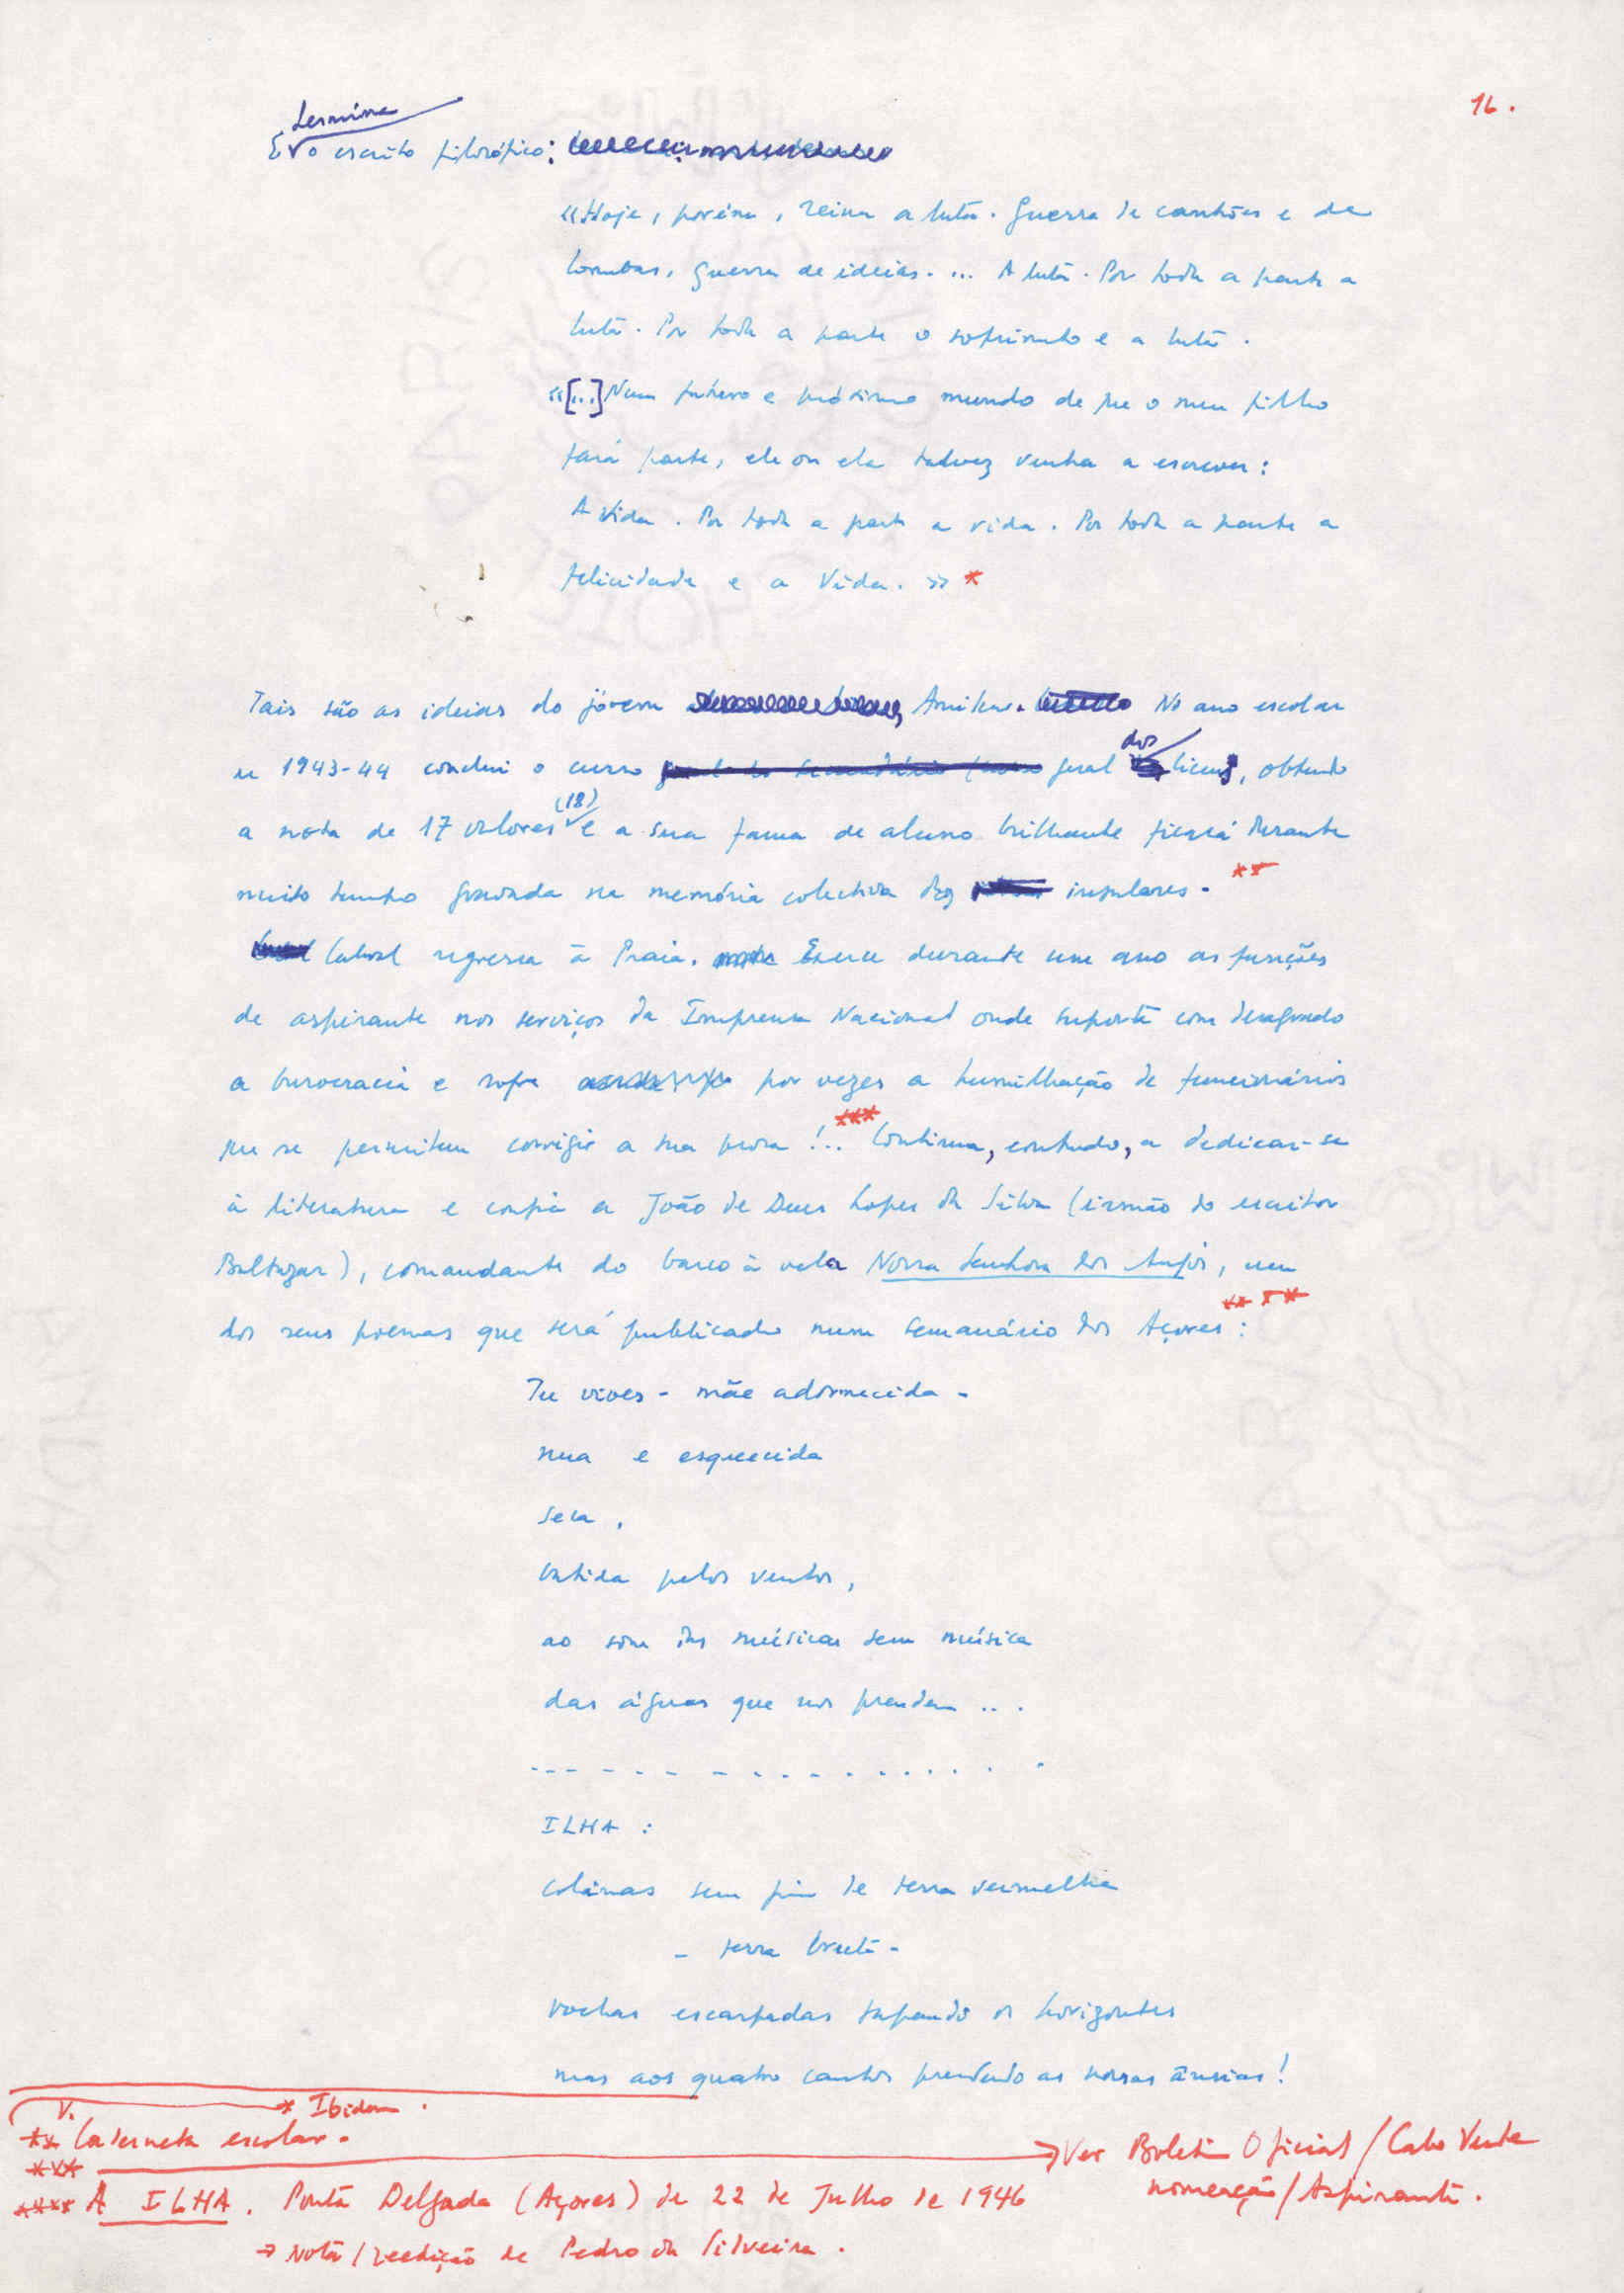 16.
termina
E o escrito filosófico:
«Hoje, porém, reina a luta. Guerra de canhões e de
bombas, guerra de ideias. ... A luta. Por toda a parte a
luta. Por toda a parte o sofrimento e a luta.
«[...] Num futuro e próximo mundo de que o meu filho
fará parte, ele ou ela talvez venha a escrever:
A Vida. Por toda a parte a vida. Por toda a parte a
felicidade e a Vida.» *
Tais são as ideias do jóvem Amílcar. No ano escolar
de 1943-44 conclui o curso geral dos liceus, obtendo
a nota de 17 valores (18) e a sua fama de aluno brilhante ficará durante
muito tempo gravada na memória colectiva dos insulares. **
Cabral regressa à Praia. Exerce durante um ano as funções
de aspirante nos serviços da Imprensa Nacional onde suporta com desagrado
a burocracia e sofre por vezes a humilhação de funcionários
que se permitem corrigir a sua prosa!.. *** Continua, contudo, a dedicar-se
à literatura e confia a João de Deus Lopes da Silva (irmão do escritor
Baltazar), comandante do barco à vela Nossa Senhora dos Anjos, um
dos seus poemas que será publicado num semanário dos Açores: ****
Tu vives - mãe adormecida -
nua e esquecida
seca,
batida pelos ventos,
ao som das músicas sem música
das águas que nos prendem ...
ILHA:
colinas sem fim de terra vermelha
- terra bruta -
rochas escarpadas tapando os horizontes
mas aos quatro cantos prendendo as nossas ânsias!
V. * Ibidem.
** Caderneta escolar.
*** → Ver Boletim Oficial / Cabo Verde
nomeação / Aspirante.
**** A ILHA. Ponta Delgada (Açores) de 22 de Julho de 1946
→ Nota / reedição de Pedro da Silveira.